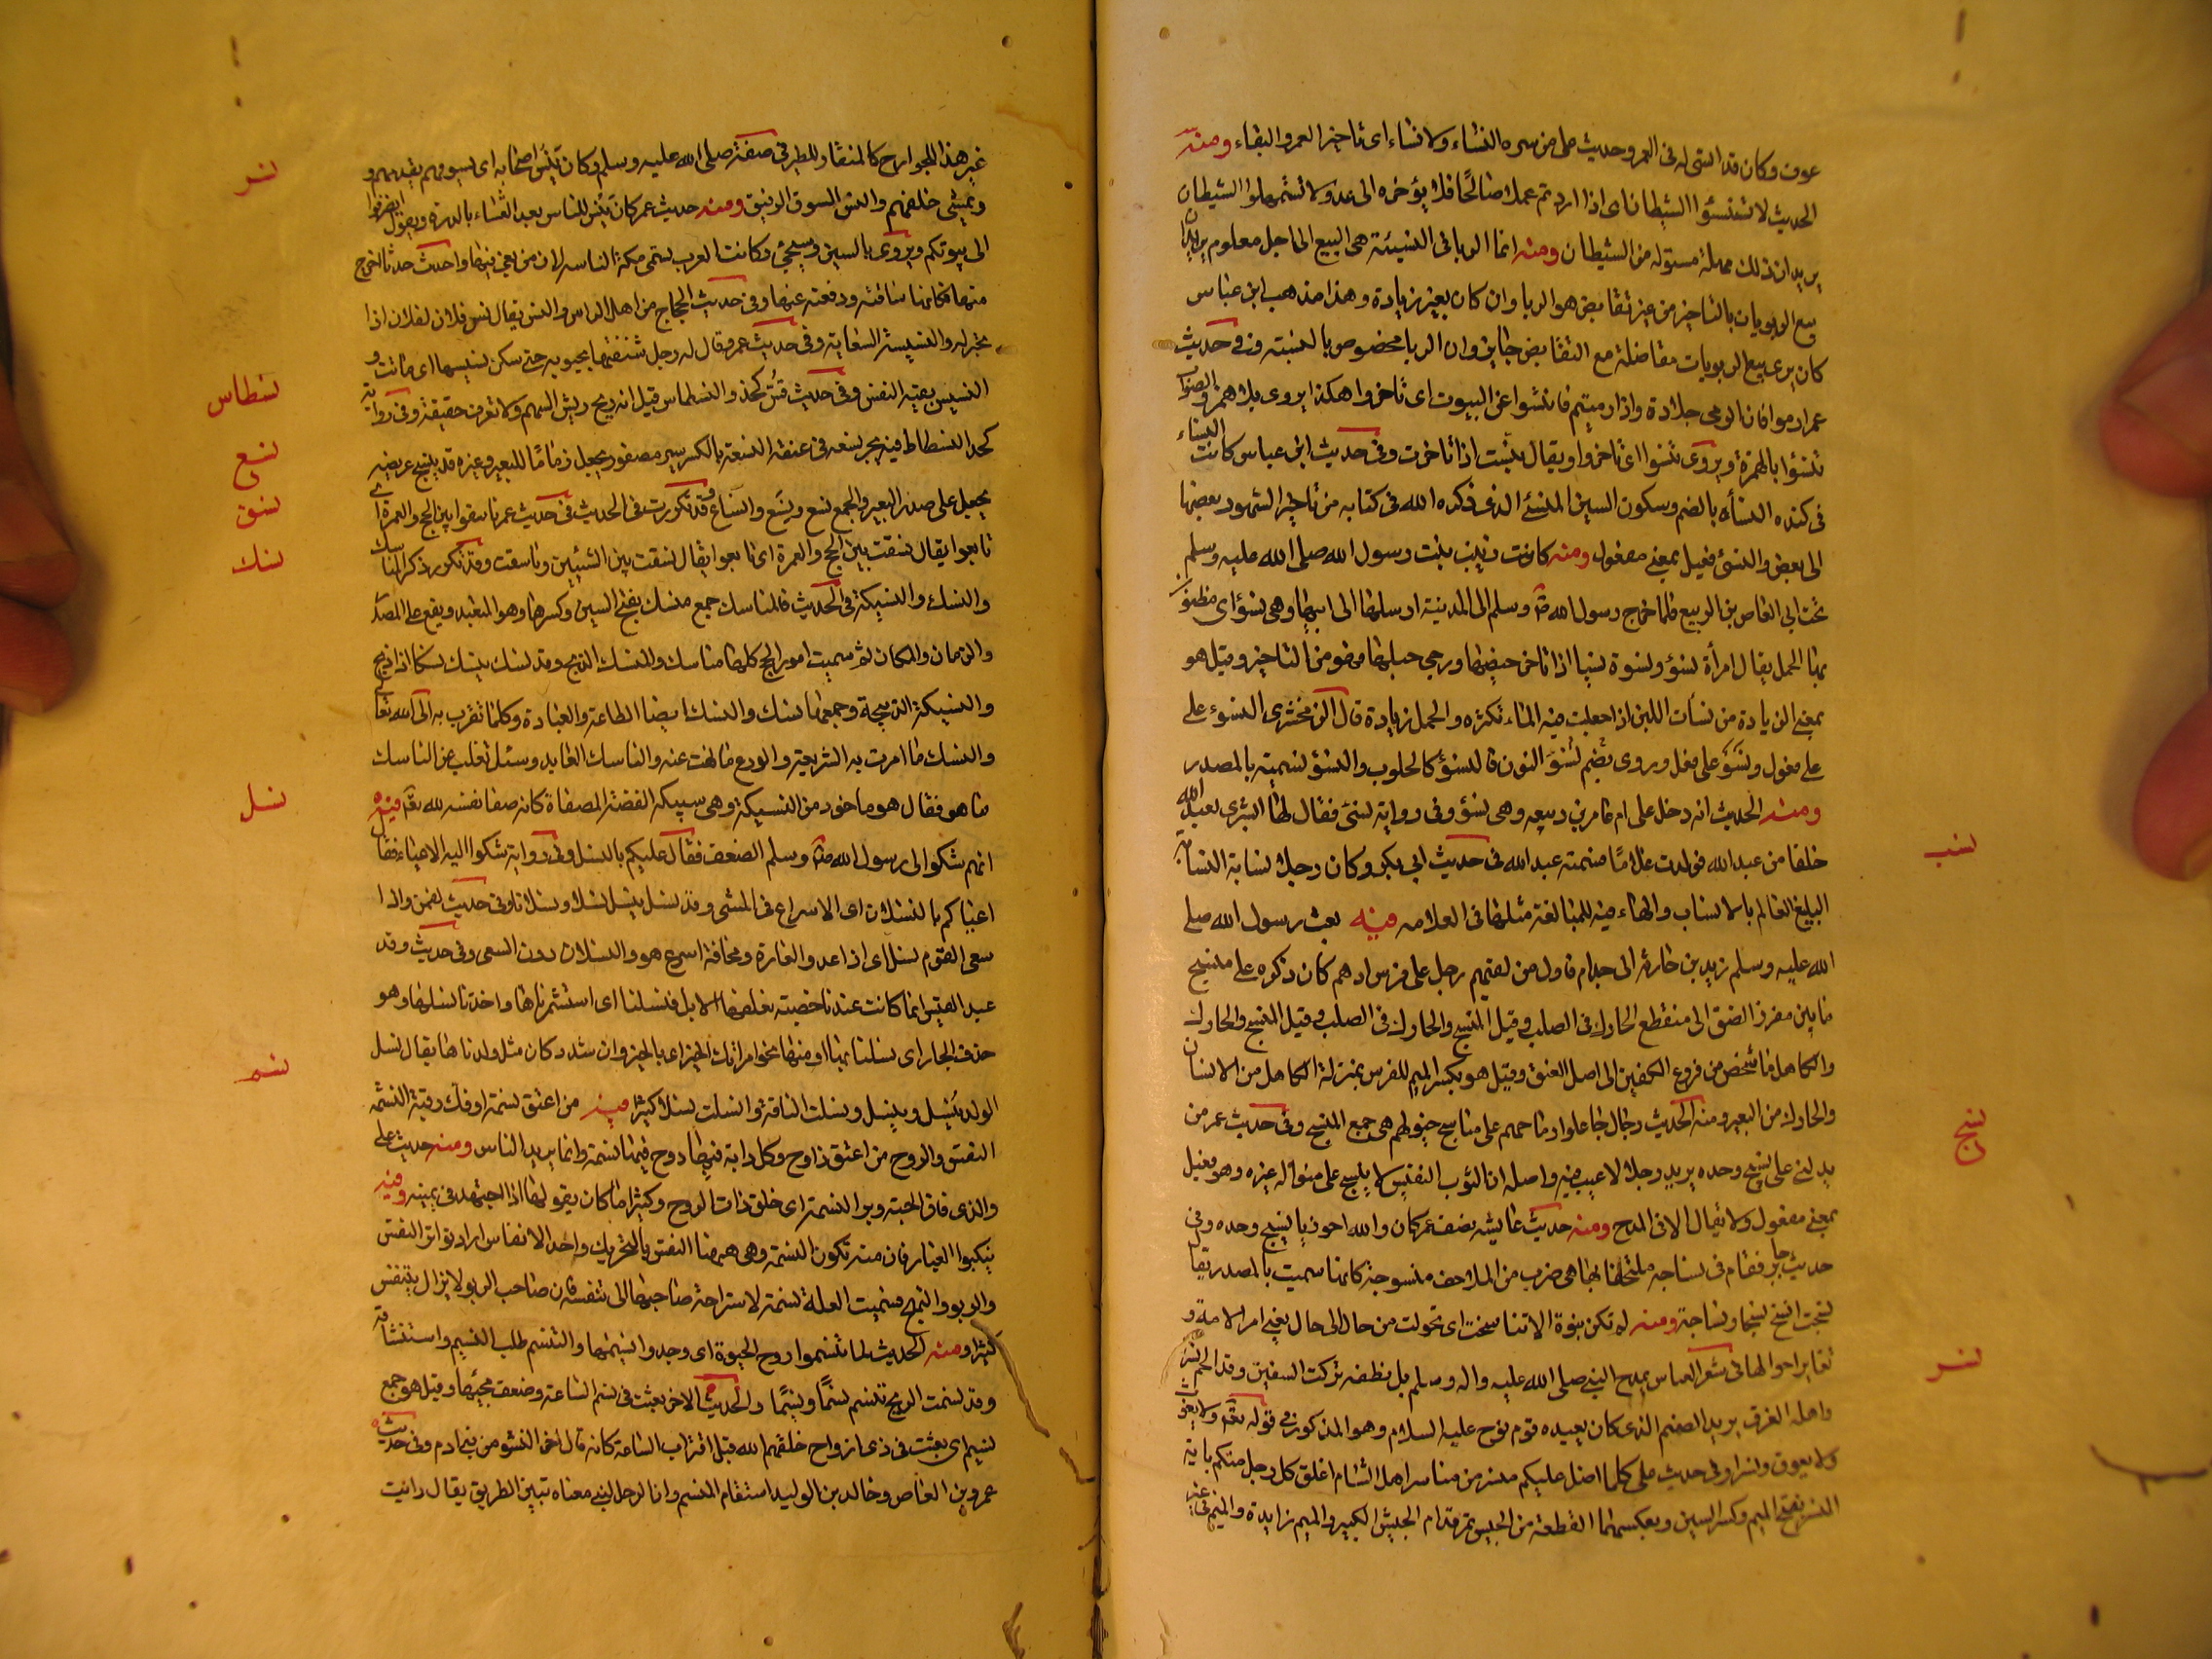 عوف وكان قد انسى له فى العمر وحديث على من سره النساء ولا نساء اى تاخير العمر والبقاء ومنه
الحديث لا تستنسؤا الشيطان اى اذا اردتم عملا صالحا فلا يؤخره الى غد ولا تستمهلوا الشيطان
يريد ان ذلك مهلة مسئولة من الشيطان ومنه انما الربا فى النسيئة هى البيع الى اجل معلوم يريد ان
بيع الربويات بالتاخير من غير تقابض هو الربا وان كان بغير زيادة وهذا مذهب ابن عباس
كان يرى بيع الربويات مفاضلة مع التقابض جايز وان الربا مخصوص بالنسئة وفى حديث
عمر ارموا فان الرمى جلادة واذا رميتم فانتسوا عن البيوت اى تاخروا هكذا يروى بلا همز والصواب
تنسؤا بالهمزة ويروى بنسوا اى تاخروا ويقال بنست اذا تاخرت وفى حديث ابن عباس كانت النساء
فى كنده النسأه بالضم وسكون السين المنسئ الذى ذكره الله فى كتابه من تاخير الشهور بعضها
الى بعض والنسئ فعيل بمعنى مفعول ومنه كانت زينب بنت رسول الله صلى الله عليه وسلم
تحت ابى العاص بن الربيع فلما خرج رسول الله وسلم الى المدينة ارسلها الى ابيها وهى نسؤ اى مظنون
بها الحمل يقال امرأة نسؤ ونسوة نسا اذا تاخر حيضها ورجى حبلها فهو من التاخير وقيل هو
بمعنى الزيادة من نسأت اللبن اذا جعلت فيه الماء تكثره والحمل زيادة قال الزمخشرى النسوء على
على مفعول ونسؤ على فعل وروى بضم نسؤ النون فالنسؤ كالحلوب والنسؤ تسميته بالمصدر
ومنه الحديث انه دخل على ام عامر بن ربيعه وهى نسؤ وفى رواية نسئ فقال لها ابشرى بعبد الله
خلفا من عبد الله فولدت غلاما فسمته عبد الله فى حديث ابى بكر وكان رجلا نسابة النسابة
البليغ العالم بالانساب والهاء فيه للمبالغة مثلها فى العلامه فيه بعث رسول الله صلى
الله عليه وسلم زيد بن حارثة الى جذام فاول من لقيهم رجل على فرس ادهم كان ذكره على منسج
ما بين مغرز العنق الى منقطع الحارك فى الصلب وقيل المنسج والحارك فى الصلب وقيل المنسج والحارك
والكاهل ما شخص من فروع الكتفين الى اصل العنق وقيل هو بكسر الميم للفرس بمنزلة الكاهل من الانسان
والحارك من البعير ومنه الحديث رجال جاعلوا رماحهم على مناسج خيولهم هى جمع المنسج وفى حديث عمر من
يدلنى على نسيج وحده يريد رجلا لا عيب فيه واصله ان الثوب النفيس لا ينسج على منواله غيره وهو فعيل
بمعنى مفعول ولا يقال الا فى المدح ومنه حديث عايشه يصف عمر كان والله احوذيا نسيج وحده وفى
حديث جابر فقام فى نساجه ملتحفا بها هى ضرب من الملاحف منسوجة كانها سميت بالمصدر يقال
نسجت انسج نسجا ونساجة ومنه لم تكن نبوة الا تناسخت اى تحولت من حال الى حال يعنى امر الامة و
تغاير احوالها فى شعر العباس يمدح النبى صلى الله عليه واله وسلم بل نطفه تركب السفين وقد الجم نسرا
واهله الغرق يريد الصنم الذى كان يعبده قوم نوح عليه السلام وهو المذكور فى قوله تعه ولا يغوث
ولا يعوق ونسرا وفى حديث على كلما اضل عليكم منسر من مناسر اهل الشام اغلق كل رجل منكم بابه
المنسر بفتح الميم وكسر السين وبعكسهما القطعة من الجيش تمر قدام الجيش الكبير والميم زايدة والميم فى غير
نسب
نسج
نسر
غير هذا للجوارح كالمنقار للطير فى صفة صلى الله عليه وسلم وكان ينس اصحابه اى يسوقهم يقدمهم و
ويمشى خلفهم والنس السوق الرقيق ومنه حديث عمر كان ينس الناس بعد العشاء بالدرة ويقول انصرفوا
الى بيوتكم ويروى بالسين وسيجئ وكانت العرب تسمى مكة الناسه لان من بغى فيها واحدث حدثا اخرج
منها فكانها ساقته ودفعته عنها وفى حديث الحجاج من اهل الراس والنس يقال نس فلان لفلان اذا
تخبر له والنسيسة السعاية وفى حديث عمر وقال له رجل شنقتها بجبوبه حتى سكن نسيسها اى ماتت و
النسيس بقية النفس وفى حديث قس كحذو النسطاس قيل انه ريح ريش السهم ولا تعرف حقيقة وفى رواية
كحد النسطاط فيه يجر نسعه فى عنقه النسعة بالكسر سير مضفور يجعل زماما للبعير وغيره قد ينسج عريضه
يجعل على صدر البعير والجمع نسع ونسع وانساع وقد تكررت فى الحديث فى حديث عمر ناسقوا بين الحج والعمرة اى
تابعوا يقال نسقت بين الحج والعمرة اى تابعوا يقال نسقت بين الشيئين وناسقت وقد تكرر ذكر المناسك
والنسك والنسيكة فى الحديث فالمناسك جمع منسك بفتح السين وكسرها وهو المتعبد ويقع على المصدر
والزمان والمكان ثم سميت امور الحج كلها مناسك والمنسك المذبح وقد نسك ينسك نسكا اذا ذبح
والنسيكة الذبيحة وجمعها نسك والنسك ايضا الطاعة والعبادة وكلما تقرب به الى الله تعالى
والنسك ما امرت به الشريعة والورع ما نهت عنه والناسك العابد وسئل ثعلب عن الناسك
ما هو فقال هو ماخوذ من النسيكة وهى سبيكة الفضة المصفاة كانه صفا نفسه لله تعه فيه
انهم شكوا الى رسول الله وسلم الضعف فقال عليكم بالنسل وفى رواية شكوا اليه الاعياء فقال
عليكم بالنسلان اى الاسراع فى المشى وقد نسل ينسل نسلا ونسلانا وفى حديث لقمن واذا
سعى القوم نسل اى اذا عدوا لغارة ومخافة اسرع هو والنسلان دون السعى وفى حديث وفد
عبد القيس انما كانت عندنا خصبة نعلفها الابل فنسلنا اى استثمرناها واخذنا نسلها وهو
حذف الجار اى نسلنا بها او منها نحو امرتك الخير اى بالخير وان شدد كان مثل ولدناها يقال نسل
الولد ينسل وينسل ونسلت الناقة وانسلت نسلا كثيرا فيه من اعتق نسمة او فك رقبة النسمة
النفس والروح من اعتق ذا روح وكل دابة فيها روح فهى نسمة وانما يريد الناس ومنه حديث على
والذى فلق الحبة وبرا النسمة اى خلق ذات الروح وكثيرا ما كان يقولها اذا اجتهد فى يمينه وفيه
تنكبوا الغبار فان منه تكون النسمة وهى ههنا النفس بالتحريك واحد الانفاس اراد تواتر النفس
والربو والنهج فسميت العلة نسمة لاستراحة صاحبها الى تنفسه فان صاحب الربو لا يزال يتنفس
كثيرا ومنه الحديث لما تنسموا روح الحيوة اى وجدوا نسيمها والتنسم طلب النسيم واستنشاقه
وقد نسمت الريح تنسم نسما ونسيما والحديث الاخر بعثت فى نسم الساعة وضعف مجيئها وقيل هو جمع
نسيم اى بعثت فى ذى ارواح خلقهم الله قبل اقتراب الساعة كانه قال اخر النشو من بنى ادم وفى حديث
عمرو بن العاص وخالد بن الوليد استقام المنسم وان الرجل لنبى معناه تبين الطريق يقال رايت
نسر
نسطاس
نسع
نسق
نسك
نسل
نسم